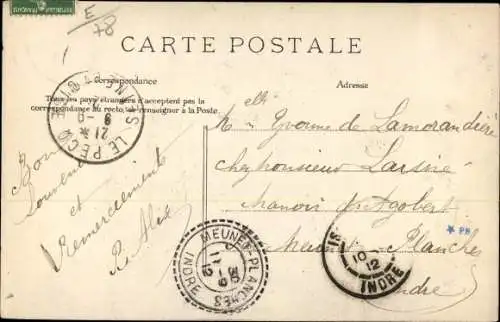 E
78
CARTE POSTALE
Correspondance
Adresse
Tous les pays étrangers n'acceptent pas la
correspondance au recto, se renseigner à la Poste.
LE PECQ
21
9
Bon
Souvenir
et
Remerciements
R. Alex
elle
M Yvonne de Lamorandière
chez monsieur Larsiré
Manoir
Meunet-Planches
Indre
MEUNET-PLANCHES
INDRE
10
12
INDRE
* PH